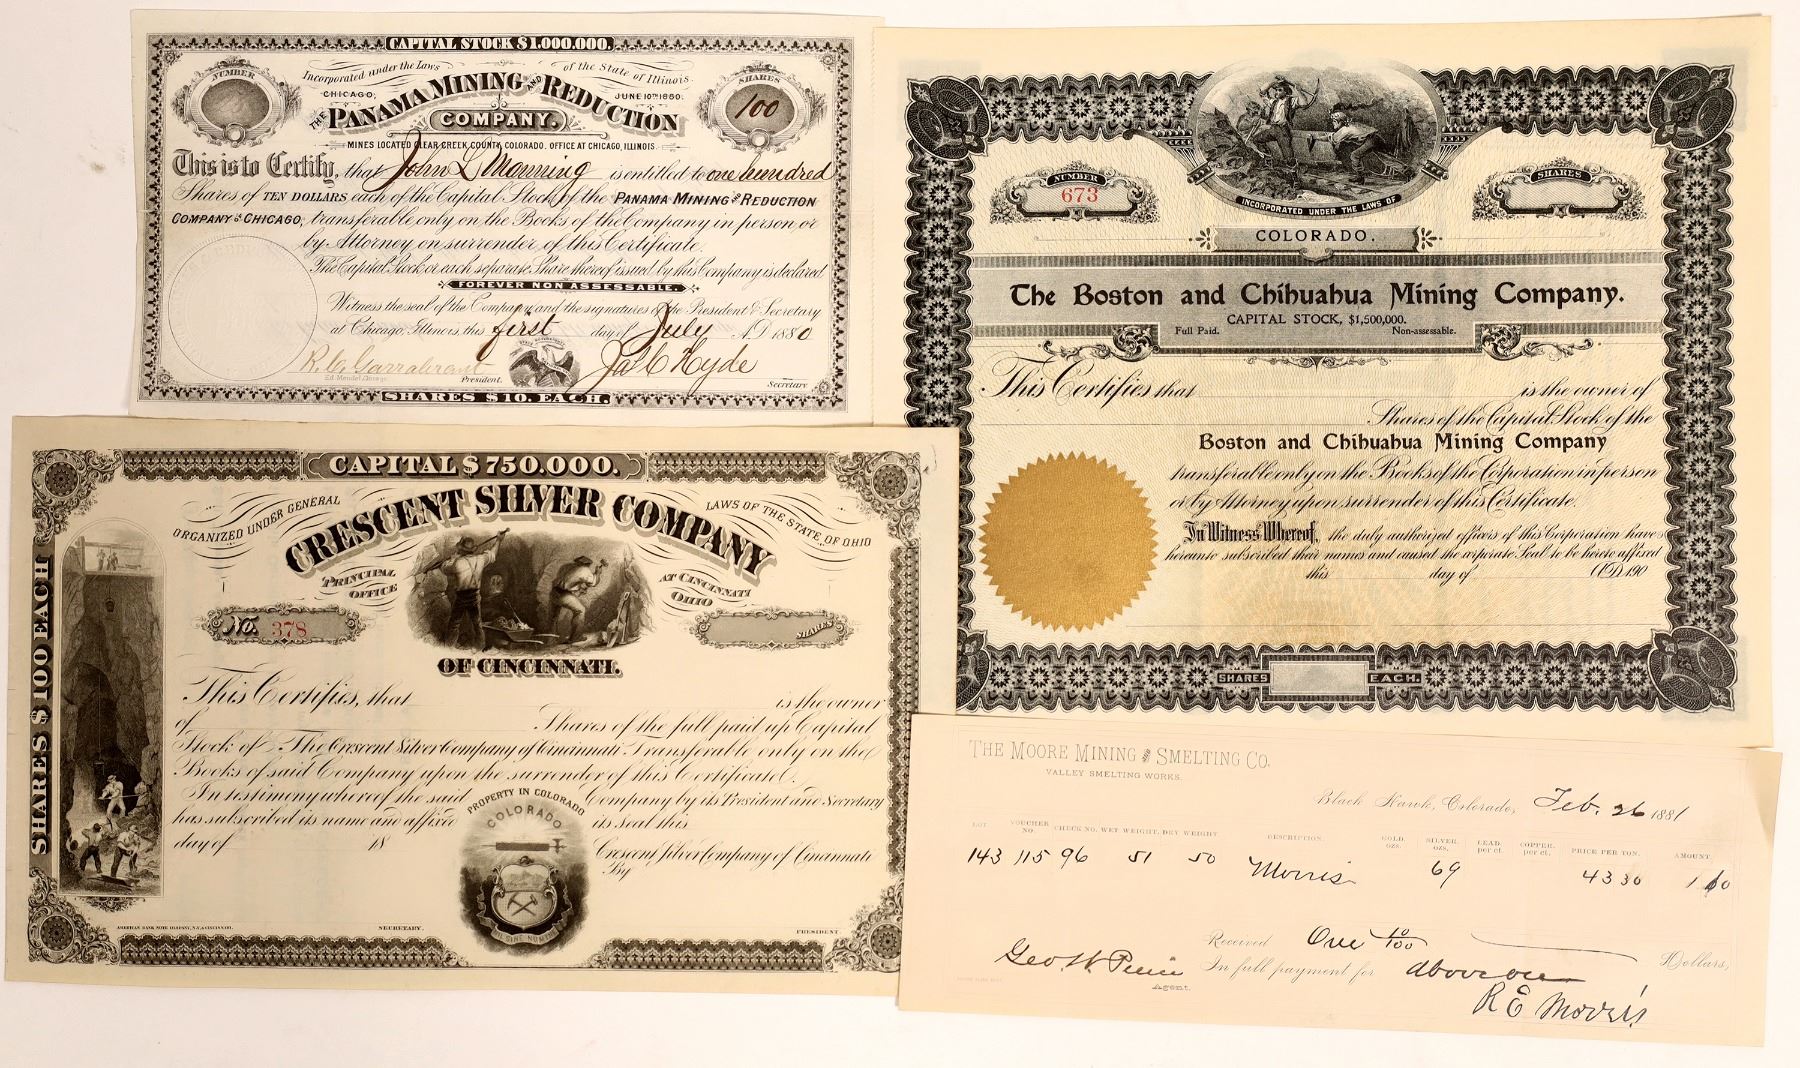 CAPITAL STOCK $1.000.000.
NUMBER
Incorporated under the Laws
of the State of Illinois.
SHARES
CHICAGO,
JUNE 10TH 1880.
100
THE PANAMA MINING AND REDUCTION
COMPANY.
MINES LOCATED CLEAR CREEK COUNTY, COLORADO. OFFICE AT CHICAGO, ILLINOIS.
This is to Certify, that John L Manning is entitled to one hundred
Shares of TEN DOLLARS each of the Capital Stock of the PANAMA MINING AND REDUCTION
COMPANY OF CHICAGO, transferable only on the Books of the Company in person or
by Attorney on surrender of this Certificate.
The Capital Stock or each separate Share thereof issued by this Company is declared
FOREVER NON ASSESSABLE.
Witness the seal of the Company and the signatures of the President & Secretary
at Chicago, Illinois, this first day of July A.D. 1880
Jas C Hyde
President.
Secretary
SHARES $10. EACH.
INCORPORATED UNDER THE LAWS OF
COLORADO.
NUMBER
673
SHARES
The Boston and Chihuahua Mining Company.
CAPITAL STOCK, $1,500,000.
Full Paid.
Non-assessable.
This Certifies that is the owner of
Shares of the Capital Stock of the
Boston and Chihuahua Mining Company
transferable only on the Books of the Corporation in person
or by Attorney upon surrender of this Certificate.
In Witness Whereof, the duly authorized officers of this Corporation have
hereunto subscribed their names and caused the corporate Seal to be hereto affixed
this day of A.D. 190
SHARES EACH.
CAPITAL $750.000.
ORGANIZED UNDER GENERAL
LAWS OF THE STATE OF OHIO
CRESCENT SILVER COMPANY
PRINCIPAL
OFFICE
AT CINCINNATI
OHIO
No. 378
SHARES
OF CINCINNATI.
SHARES $100 EACH
This Certifies, that is the owner
of Shares of the full paid up Capital
Stock of The Crescent Silver Company of Cincinnati. Transferable only on the
Books of said Company upon the surrender of this Certificate.
In testimony whereof the said Company by its President and Secretary
has subscribed its name and affixed its Seal this
day of 18
PROPERTY IN COLORADO
COLORADO
NIL SINE NUMINE
Crescent Silver Company of Cincinnati
By
AMERICAN BANK NOTE COMPANY, N.Y. & CINCINNATI.
SECRETARY.
PRESIDENT.
THE MOORE MINING AND SMELTING CO.
VALLEY SMELTING WORKS.
Black Hawk, Colorado, Feb. 26 1881
LOT. VOUCHER NO. CHECK NO. WET WEIGHT. DRY WEIGHT DESCRIPTION. GOLD. OZS. SILVER. OZS. LEAD. per ct. COPPER. per ct. PRICE PER TON. AMOUNT.
143 115 96 51 50 Morris 69 43 30 1 10
Received One 10/100 Dollars,
In full payment for above ore
Geo. W.
Agent.
R E Morris